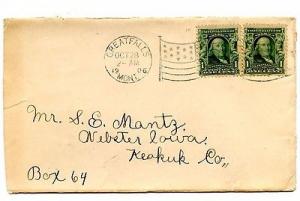 GREAT FALLS
OCT 28
2 - AM
1906
MONT.
1
1
Mr. S. E. Mantz,
Webster Iowa,
Keakuk Co.,
Box 64